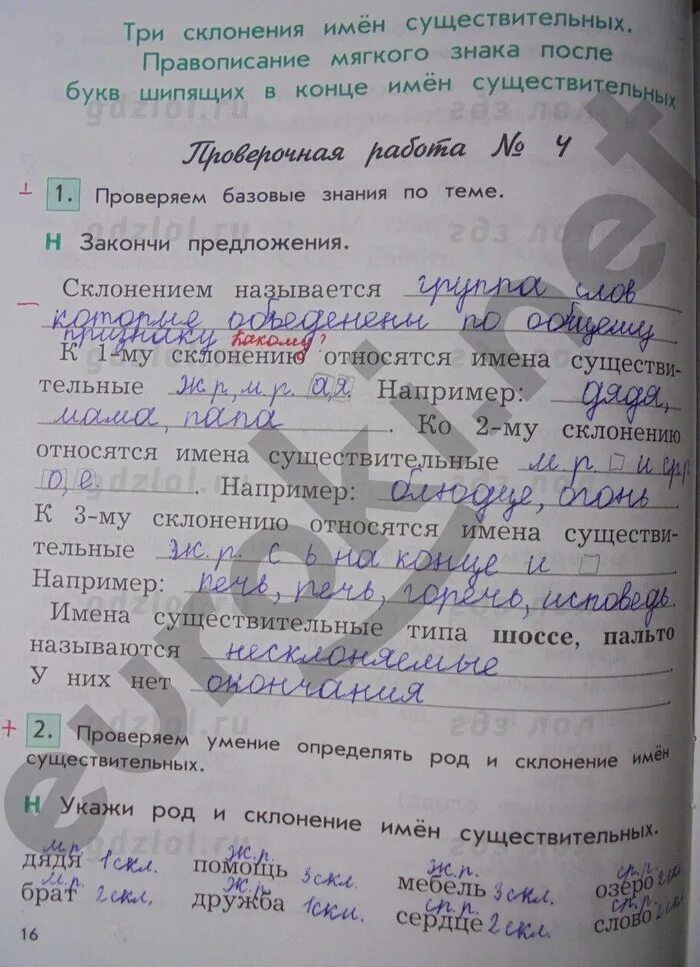 Три склонения имён существительных.
Правописание мягкого знака после
букв шипящих в конце имён существительных
Проверочная работа № 4
1. Проверяем базовые знания по теме.
Н Закончи предложения.
Склонением называется группа слов
которые обеденены по общему
признаку какому?
К 1-му склонению относятся имена существи-
тельные ж.р, м.р. а,я. Например: дядя,
мама, папа. Ко 2-му склонению
относятся имена существительные м.р. □ и ср.р
о, е. Например: блюдце, огонь.
К 3-му склонению относятся имена существи-
тельные ж.р. с ь на конце и □
Например: печь, речь, горечь, исповедь.
Имена существительные типа шоссе, пальто
называются несклоняемые
У них нет окончания
+ 2. Проверяем умение определять род и склонение имён
существительных.
Н Укажи род и склонение имён существительных.
м.р. ж.р. ж.р. ср.р.
дядя 1 скл. помощь 3 скл. мебель 3 скл. озеро 2 скл.
м.р. ж.р. ср.р. ср.р.
брат 2 скл. дружба 1 скл. сердце 2 скл. слово 2 скл.
16
gdzlol.ru
гдз лол
euroki.net